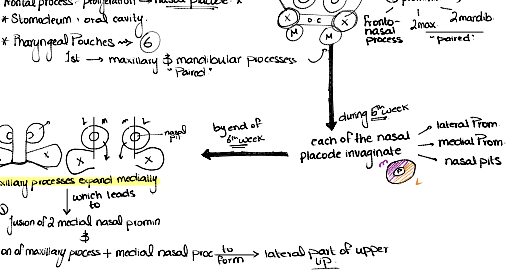 frontal process: proliferation → nasal placode x
* Stomodeum : oral cavity.
* Pharyngeal Pouches → 6
1st → maxillary & mandibular processes
"Paired"
X OC X
M M
Fronto-
nasal
process
2max. 2mandib.
"paired"
during 6th week
each of the nasal
placode invaginate
lateral Prom.
medial Prom.
nasal pits
m
L
by end of
6th week
L m m L
nasal
pit
X X X
xillary processes expand medially
which leads
to
①
fusion of 2 medial nasal promin
&
on of maxillary process + medial nasal proc to
form
→ lateral part of upper
lip